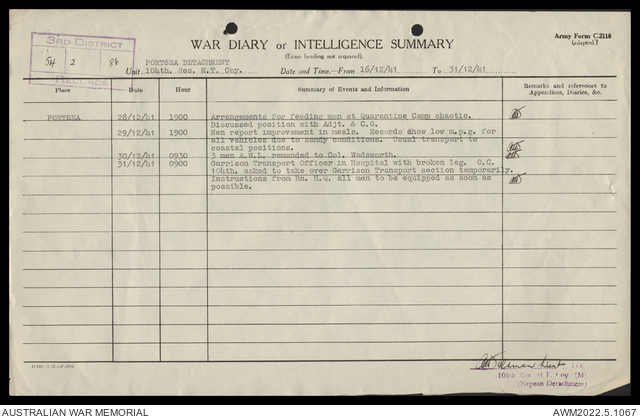 3RD DISTRICT
54 2 86
RECORDS
WAR DIARY or INTELLIGENCE SUMMARY
(Erase heading not required).
Army Form C.2118
(adapted.)
PORTSEA DETACHMENT
Unit 104th. Res. M.T. Coy. Date and Time.—From 16/12/41 To 31/12/41
Place Date Hour Summary of Events and Information Remarks and references to Appendices, Diaries, &c.
PORTSEA 28/12/41 1900 Arrangements for feeding men at Quarantine Camp chaotic.
Discussed position with Adjt. & C.O.
29/12/41 1900 Men report improvement in meals. Records show low m.p.g. for
all vehicles due to sandy conditions. Usual transport to
coastal positions.
30/12/41 0930 3 men A.W.L. remanded to Col. Wadsworth.
31/12/41 0900 Garrison Transport Officer in Hospital with broken leg. O.C.
104th. asked to take over Garrison Transport section temporarily.
Instructions from Bn. H.Q. all men to be equipped as soon as
possible.
104th Res. M.T. Coy
(Nepean Detachment)
AUSTRALIAN WAR MEMORIAL AWM2022.5.1067